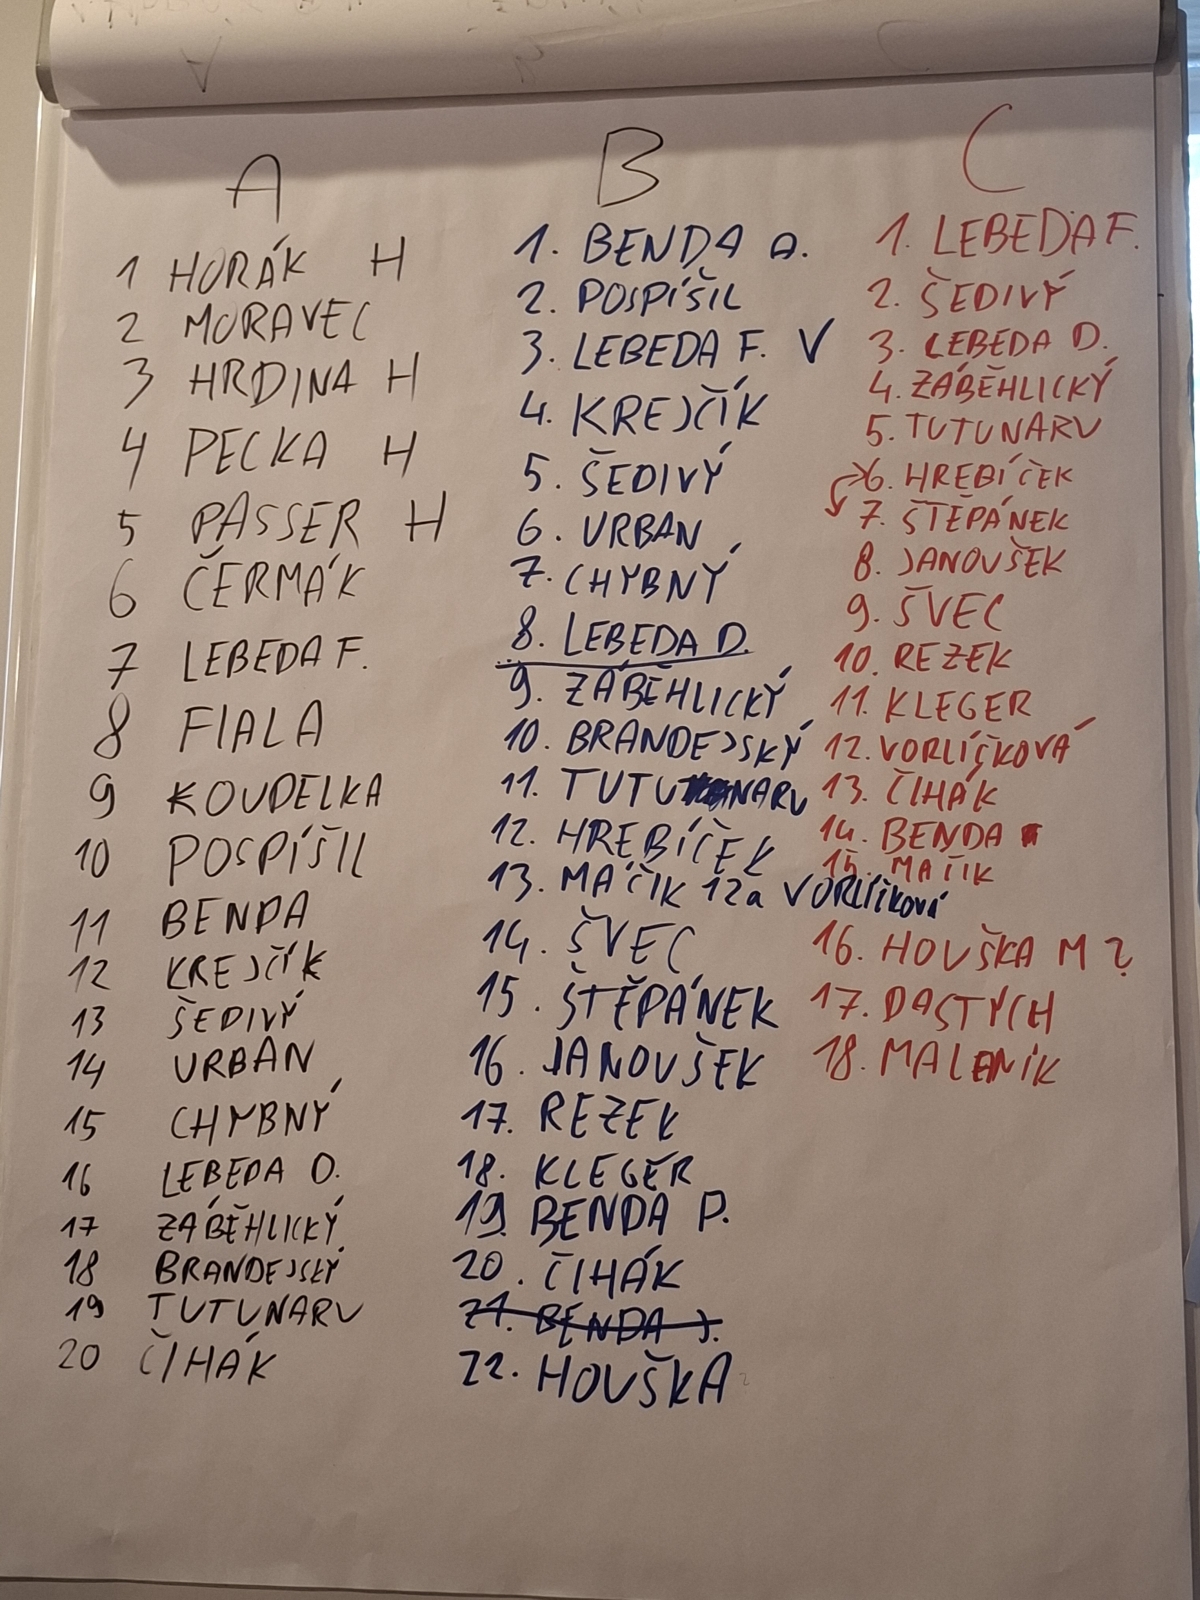 A
1 HORÁK H
2 MORAVEC
3 HRDINA H
4 PECKA H
5 PASSER H
6 ČERMÁK
7 LEBEDA F.
8 FIALA
9 KOUDELKA
10 POSPÍŠIL
11 BENDA
12 KREJČÍK
13 ŠEDIVÝ
14 URBAN
15 CHYBNÝ
16 LEBEDA D.
17 ZÁBĚHLICKÝ
18 BRANDEJSKÝ
19 TUTUNARU
20 ČIHÁK
B
1. BENDA A.
2. POSPÍŠIL
3. LEBEDA F. V
4. KREJČÍK
5. ŠEDIVÝ
6. URBAN
7. CHYBNÝ
8. LEBEDA D.
9. ZÁBĚHLICKÝ
10. BRANDEJSKÝ
11. TUTUNARU
12. HREBÍČEK
13. MAČIK 12a VORLÍČKOVÁ
14. ŠVEC
15. ŠTĚPÁNEK
16. JANOUŠEK
17. REZEK
18. KLEGER
19. BENDA P.
20. ČIHÁK
21. BENDA J.
22. HOUŠKA
C
1. LEBEDA F.
2. ŠEDIVÝ
3. LEBEDA D.
4. ZÁBĚHLICKÝ
5. TUTUNARU
6. HREBÍČEK
7. ŠTĚPÁNEK
8. JANOUŠEK
9. ŠVEC
10. REZEK
11. KLEGER
12. VORLÍČKOVÁ
13. ČIHÁK
14. BENDA
15. MAČIK
16. HOUŠKA M ?
17. DASTYCH
18. MALENIK